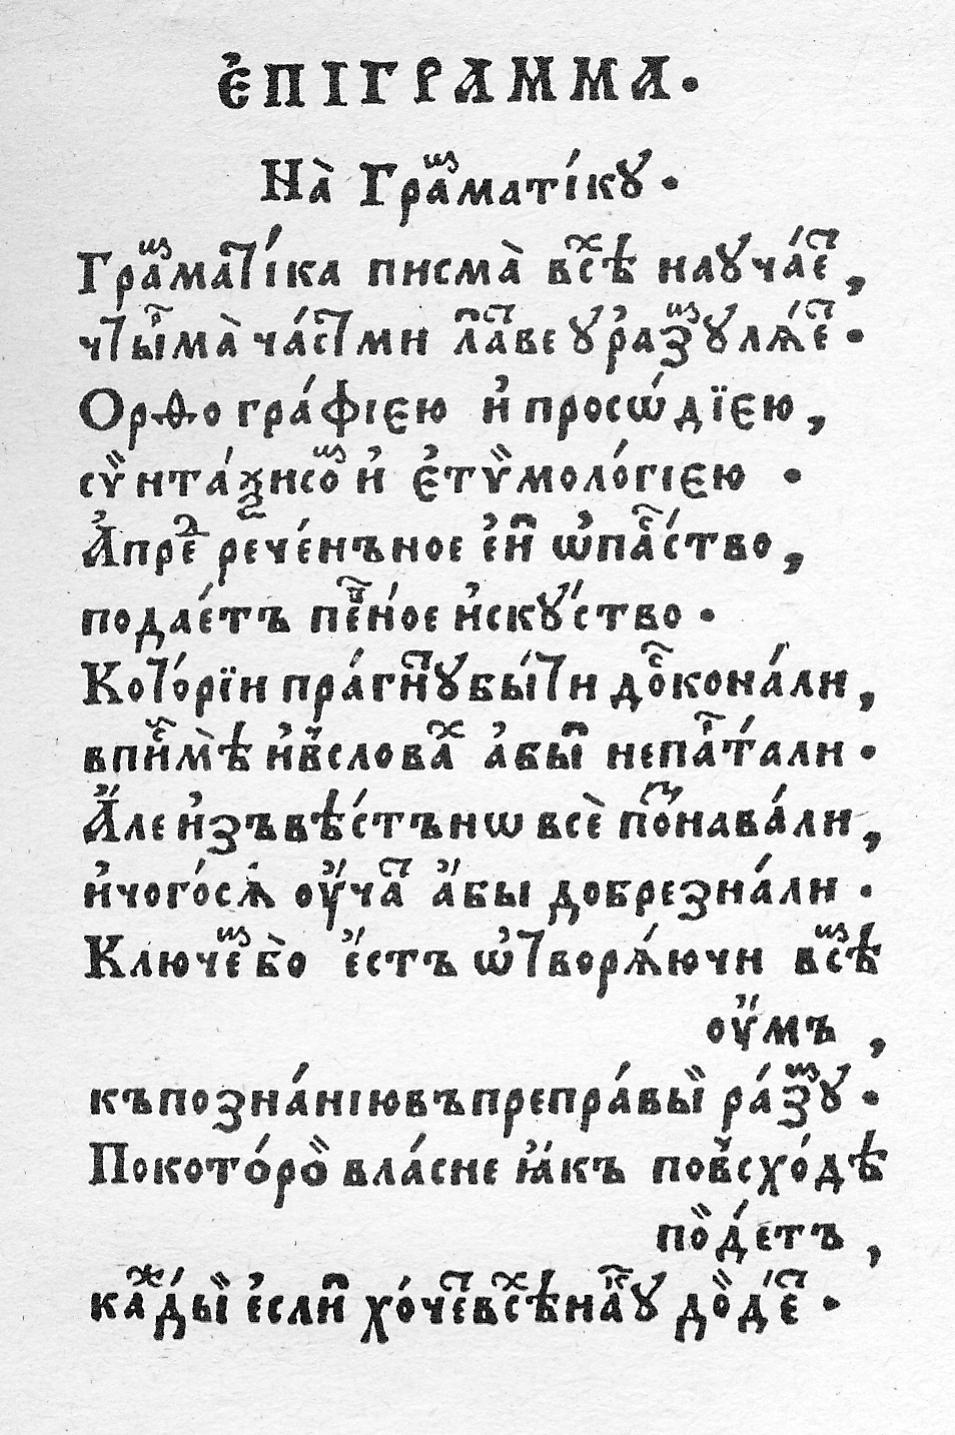 Е҆ПІГРАММА.
На̀ Граⷨматі́кꙋ.
Граⷨмаⷮі́ка писма̀ всⷯѣ наꙋча́еⷮ,
чⷮыⷬма̀ ча́сⷮми ла́ⷡве ꙋ҆разⷨꙋлѧ́еⷮ.
Орѳогра́фією и҆ просѡ́дїєю,
сѷнта́ѯисоⷨ и҆ є҆тѷмоло́гією.
А҆преⷣ рече́нъное е҆и̑ ѡ҆па́ⷭство,
подае́тъ пеⷡ҇ное и҆скꙋ́ство.
Коⷮо́рїи пра́гнⷮꙋ бы́ⷮи доⷭконáли,
впиⷭмѣ̀ и҆всловаⷯ а҆бы̑ непаⷬта́ли.
А҆́ле и҆звѣ́стънѡ всѐ поⷥнава́ли,
и҆чого́сѧ ᲂу҆́чаⷮ а҆́бы добрезна́ли.
Ключеⷨ бо̀ е҆́стъ ѿворѧ́ючи всⷨѣ
ᲂу҆́мъ,
къпозна́ніювъпрепра́вы̏ ра́зⷨꙋ.
Покото́ро̏ вла́сне ꙗ҆́къ повсхо́дѣ
по̏де́тъ,
каⷤды̏ е҆сли̑ хо́чеⷮвсⷯѣнаⷹꙋ до̏де́ⷮ.